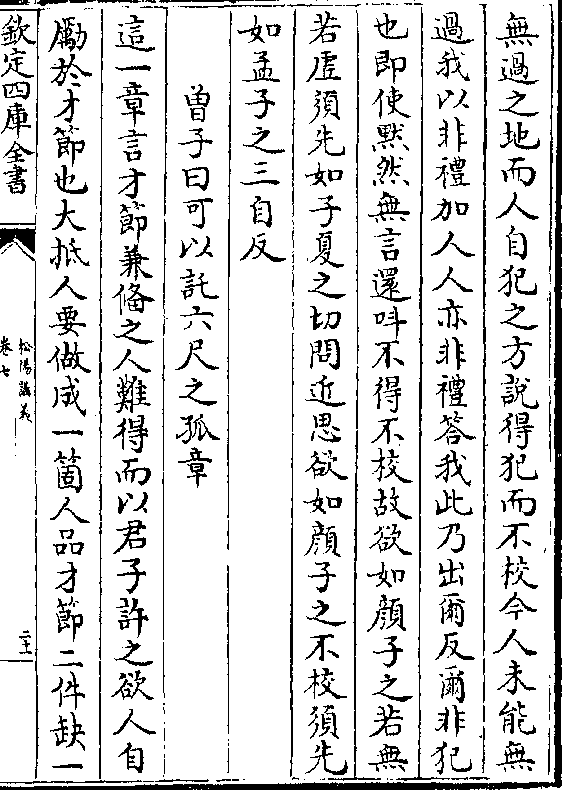 無過之地而人自犯之方說得犯而不校今人未能無
過我以非禮加人人亦非禮答我此乃出爾反爾非犯
也即使黙然無言還呌不得不校故欲如顔子之若無
若虛須先如子夏之切問近思欲如顔子之不校須先
如孟子之三自反
曽子曰可以託六尺之孤章
這一章言才節兼備之人難得而以君子許之欲人自
勵於才節也大抵人要做成一箇人品才節二件缺一
欽定四庫全書
松陽講義
卷七